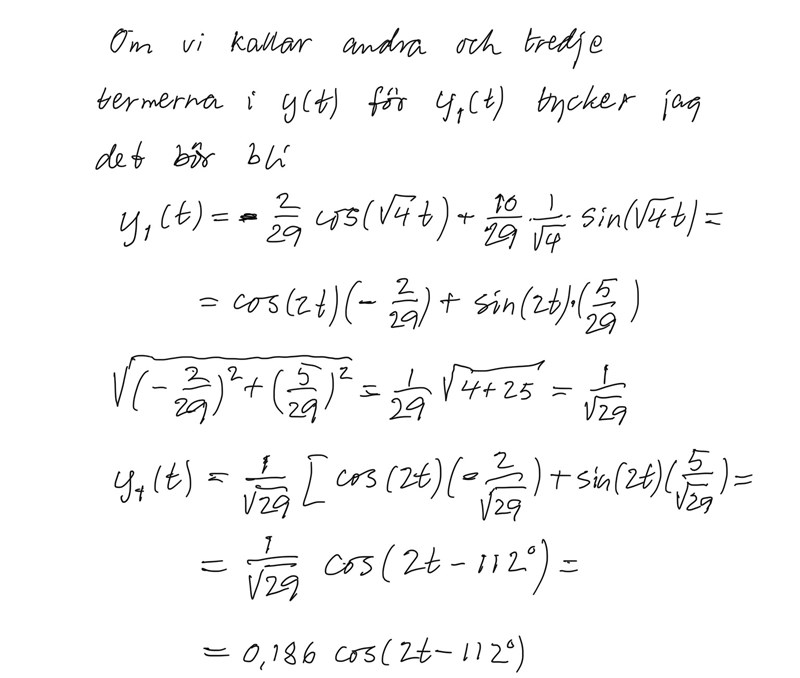 Om vi kallar andra och tredje
termerna i y(t) för y₁(t) tycker jag
det bör bli
y₁(t) = - 2/29 cos(√4 t) + 10/29 · 1/√4 · sin(√4 t) =
= cos(2t)(- 2/29) + sin(2t)·(5/29)
√((- 2/29)² + (5/29)²) = 1/29 √(4+25) = 1/√29
y₁(t) = 1/√29 [ cos(2t)(- 2/√29) + sin(2t)(5/√29) =
= 1/√29 cos(2t - 112°) =
= 0,186 cos(2t - 112°)